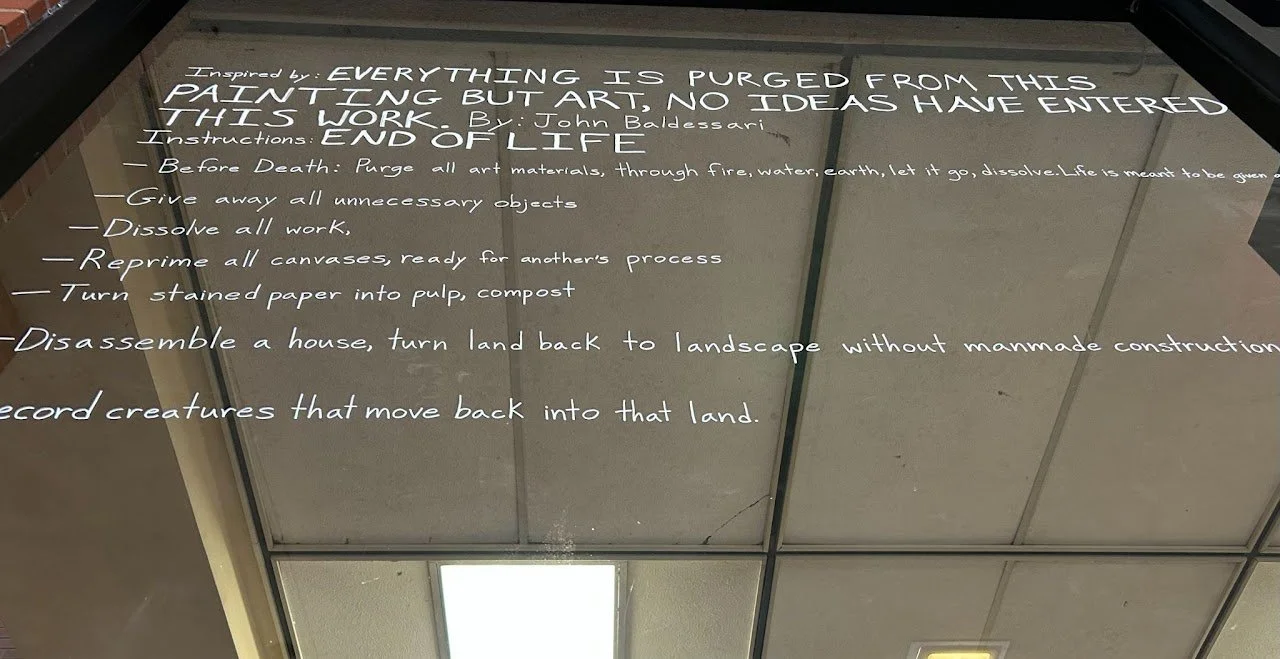 Inspired by: EVERYTHING IS PURGED FROM THIS
PAINTING BUT ART, NO IDEAS HAVE ENTERED
THIS WORK. By: John Baldessari
Instructions: END OF LIFE
— Before Death: Purge all art materials, through fire, water, earth, let it go, dissolve. Life is meant to be given
— Give away all unnecessary objects
— Dissolve all work,
— Reprime all canvases, ready for another's process
— Turn stained paper into pulp, compost
— Disassemble a house, turn land back to landscape without manmade construction
ecord creatures that move back into that land.